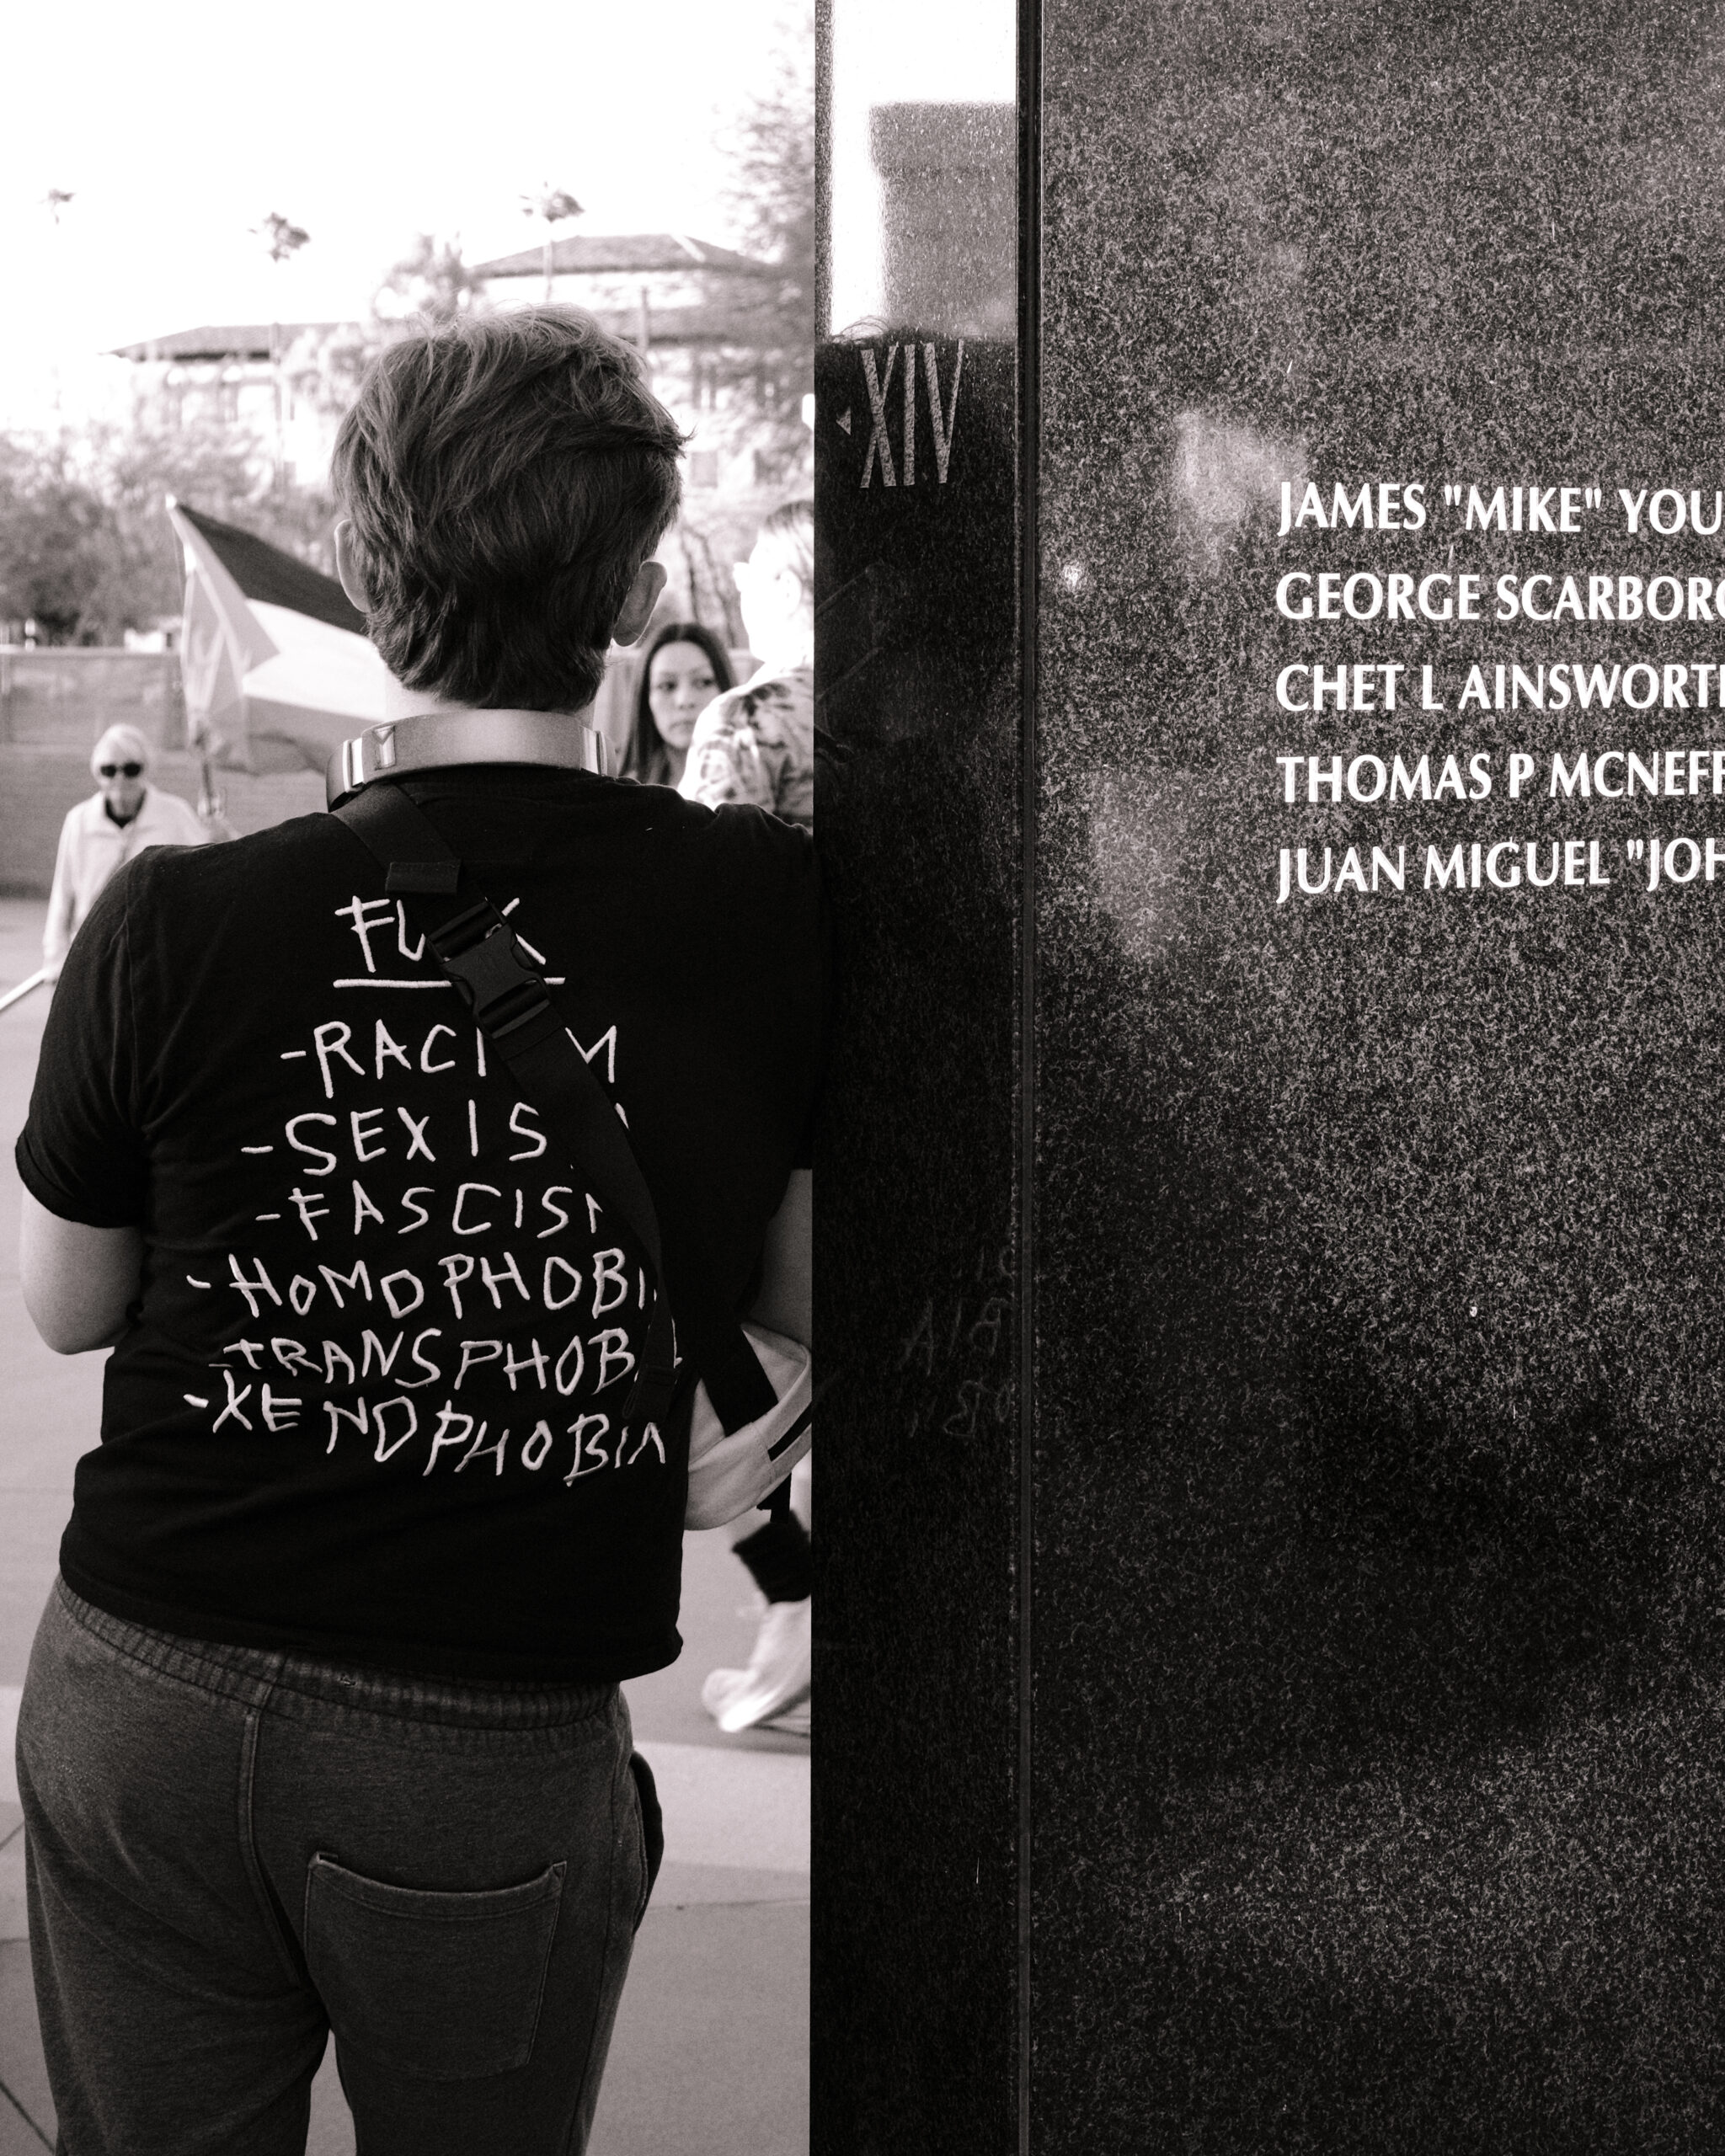 FU K
-RACI M
-SEXIS
-FASCIS
-HOMOPHOBI
-TRANSPHOB
-XENOPHOBIA
XIV
JAMES "MIKE" YOU
GEORGE SCARBORO
CHET L AINSWORTH
THOMAS P MCNEFF
JUAN MIGUEL "JOH